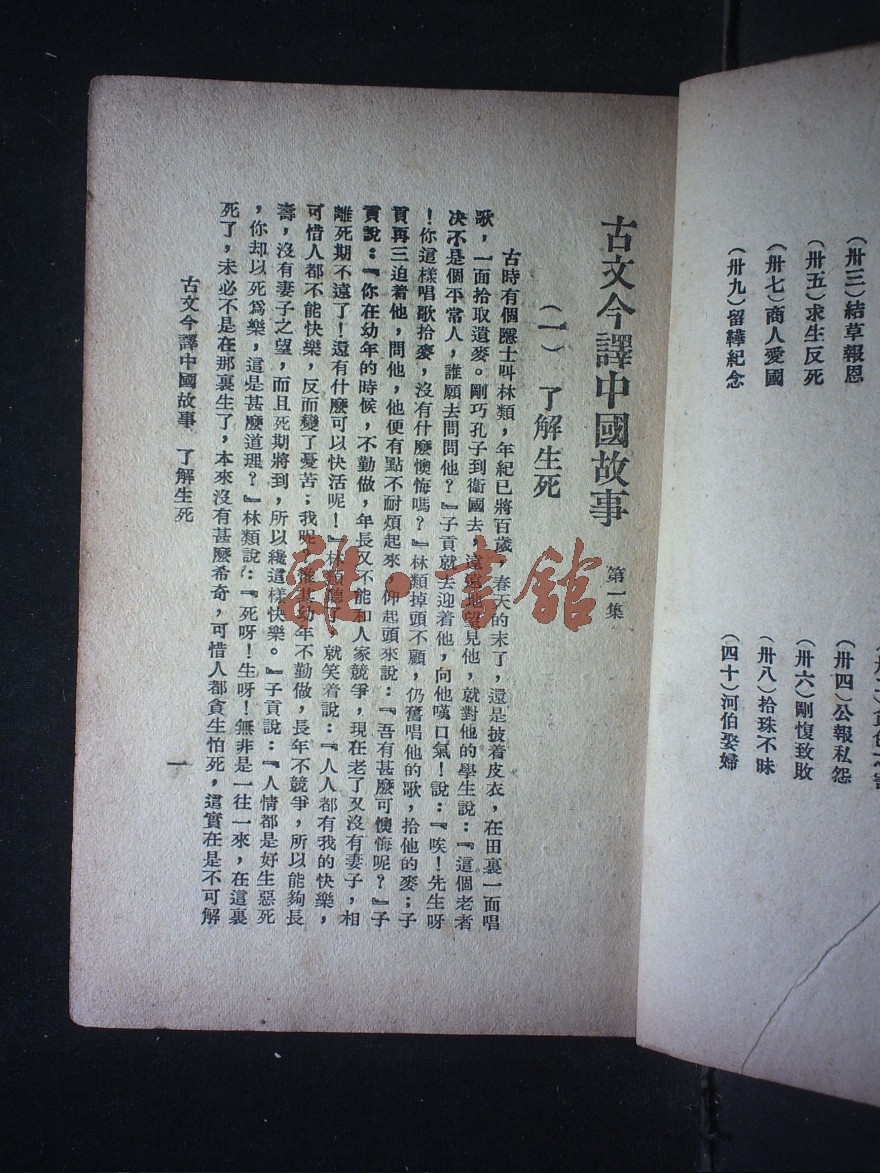 (卅三)結草報恩
(卅四)公報私怨
(卅五)求生反死
(卅六)剛愎致敗
(卅七)商人愛國
(卅八)拾珠不昧
(卅九)留鞾紀念
(四十)河伯娶婦
古文今譯中國故事 第一集
(一) 了解生死
古時有個隱士叫林類,年紀已將百歲,春天的末了,還是披着皮衣,在田裏一面唱
歌,一面拾取遺麥。剛巧孔子到衛國去,遠遠地望見他,就對他的學生說:『這個老者
決不是個平常人,誰願去問問他?』子貢就去迎着他,向他嘆口氣!說:『唉!先生呀
!你這樣唱歌拾麥,沒有什麼懊悔嗎?』林類掉頭不顧,仍舊唱他的歌,拾他的麥;子
貢再三迫着他,問他,他便有點不耐煩起來,仰起頭來說:『吾有甚麼可懊悔呢?』子
貢說:『你在幼年的時候,不勤做,年長又不能和人家競爭,現在老了又沒有妻子,相
離死期不遠了!還有什麼可以快活呢!』林類聽了,就笑着說:『人人都有我的快樂,
可惜人都不能快樂,反而變了憂苦;我呢,惟其幼年不勤做,長年不競爭,所以能夠長
壽,沒有妻子之望,而且死期將到,所以纔這樣快樂。』子貢說:『人情都是好生惡死
,你却以死爲樂,這是甚麼道理?』林類說:『死呀!生呀!無非是一往一來,在這裏
死了,未必不是在那裏生了,本來沒有甚麼希奇,可惜人都貪生怕死,這實在是不可解
古文今譯中國故事 了解生死
一
雜·書館